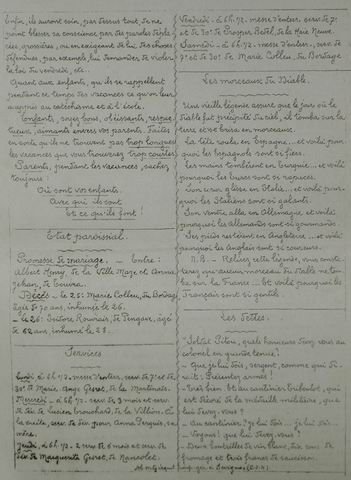 Enfin, ils auront soin, par dessus tout, de ne
point blesser sa conscience par des paroles
grossières, ou en exigeant de lui des choses
défendues, par exemple lui demander de violer
la loi du vendredi, etc.
Quant aux enfants, qu'ils se rappellent
pendant ce temps des vacances ce qu'on leur
a appris au catéchisme et à l'école.
Enfants, soyez bons, obéissants, respec-
tueux, aimants envers vos parents. Faites
en sorte qu'ils ne trouvent pas trop longues
les vacances que vous trouverez trop courtes.
Parents, pendant les vacances, sachez
toujours :
Où sont vos enfants
Avec qui ils sont
Et ce qu'ils font !
Etat paroissial.
Promesse de mariage. - Entre :
Albert Henry, de la Ville Maze et Anna
Jehan, de
Décès - le 25 : Marie Colleu, du Bordage
âgée de 70 ans, inhumée le 26.
- le 26 : Isidore Rouxais, de Pengave, âgé
de 62 ans, inhumé le 28.
Services
Lundi, à 6h ½, messe d'enterr., serv. de 7e et de
30e de Marie Ange Genet, de la Martinais.
Mercredi - à 6h ½ - serv. de 3 mois et serv.
de de Lucien brouchard, de la Villion. En
la suite, serv. de fin pour Anna Perquis, sa
mère.
Jeudi, à 6h ½ - 2 serv. de 6 mois et serv. de
fin de Marguerite Genet, de Nancolet.
Vendredi - à 6h ½ - messe d'enterr., serv. de 7e
et de 30e de Prosper Bétel, de la Haie Neuve.
Samedi - à 6h ½ - messe d'enterr., serv. de
7e et de 30e de Marie Colleu, du Bordage
Les morceaux du Diable.
Une vieille légende assure que le jour où le
Diable fut précipité du ciel, il tomba sur la
terre et se brisa en morceaux.
La tête roula en Espagne... et voilà pour-
quoi les Espagnols sont si fiers.
Les mains tombèrent en Turquie... et voilà
pourquoi les turcs sont si rapaces.
Son cœur glissa en Italie... et voilà pour-
quoi les Italiens sont si galants.
Son ventre alla en Allemagne, et voilà
pourquoi les allemands sont si gourmands.
Ses pieds restèrent en Angleterre... et voilà
pourquoi les anglais sont si coureurs.
N.B. - Relisez cette légende, vous cons-
taterez que aucun morceau du diable ne tom-
ba sur la France... Et voilà pourquoi les
Français sont si gentils.
Les Dettes.
- Soldat Pitou, quels honneurs devez-vous au
colonel en grande tenue ?
- Que je lui dois, sergent, comme qui di-
rait : Présentez armes !
- Très bien. Et au cantinier Briboulot, qui
est décoré de la médaille militaire, que
lui devez-vous ?
- Au cantinier ? Je lui dois... je lui dois...
- Voyons ! que lui devez-vous ?
- Deux bouteilles de vin blanc, dix sous de
fromage et trois francs de saucisson.